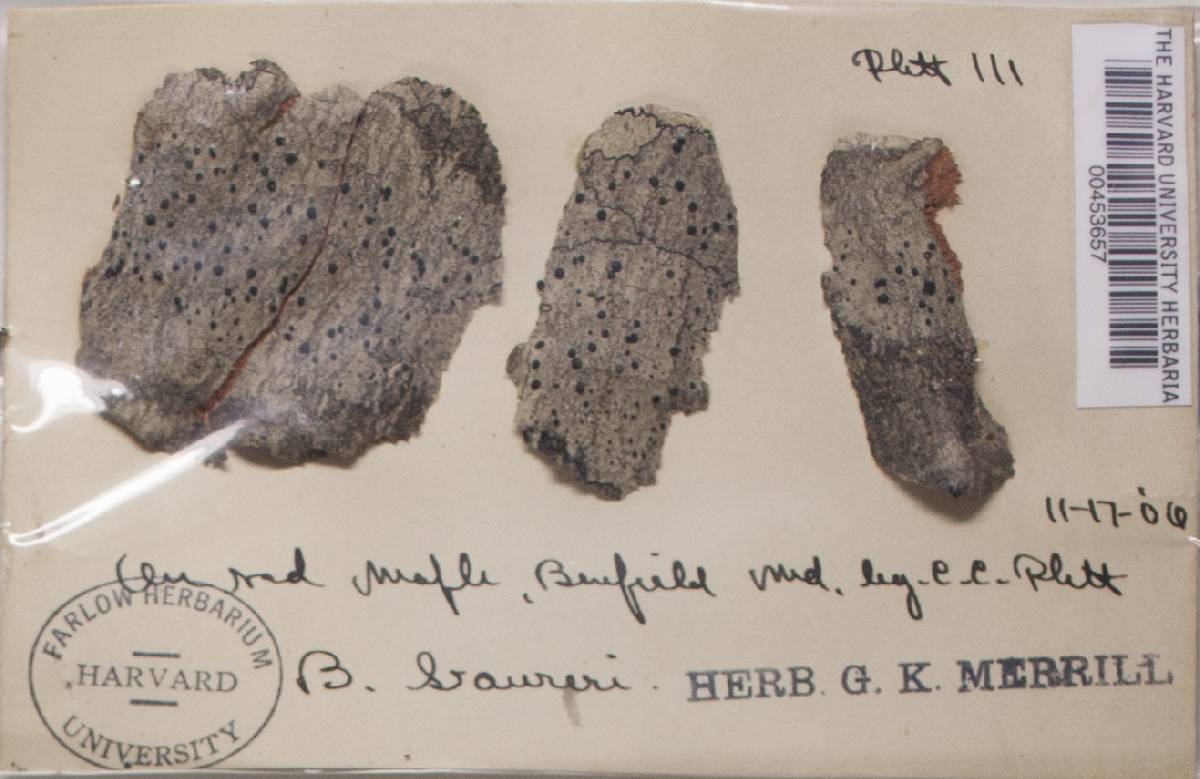 Plitt 111
THE HARVARD UNIVERSITY HERBARIA
00453657
11-17-06
On red Maple, Benfield Md. leg. C. C. Plitt
B.
HERB. G. K. MERRILL
FARLOW HERBARIUM
HARVARD
UNIVERSITY